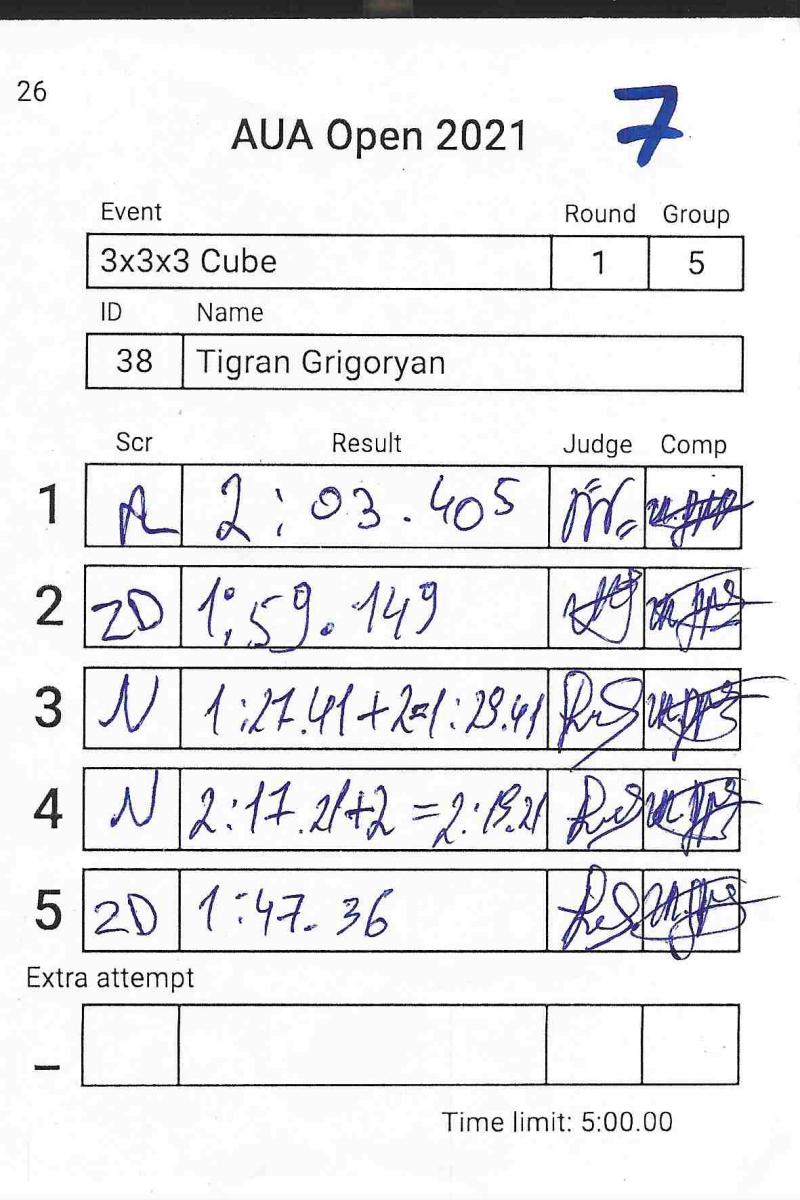 26
7
AUA Open 2021
Event Round Group
3x3x3 Cube 1 5
ID Name
38 Tigran Grigoryan
Scr Result Judge Comp
1 2:03.405
2 ZD 1:59.149
3 N 1:27.41+2=1:29.41
4 N 2:17.21+2=2:19.21
5 ZD 1:47.36
Extra attempt
_
Time limit: 5:00.00